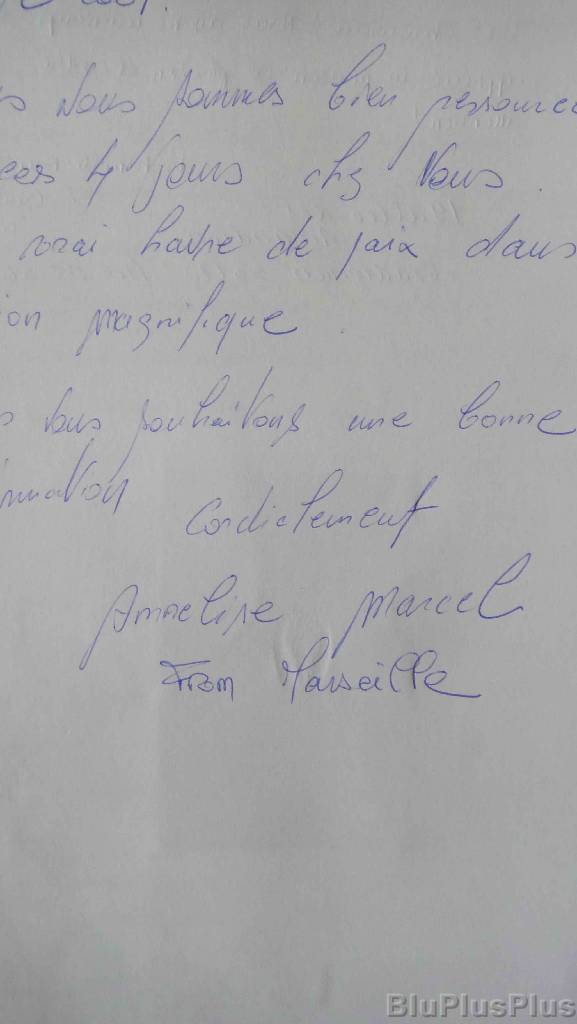 Nous sommes bien ressource
ces 4 jours chez Vous.
vrai havre de paix dans
ion magnifique.
Vous souhaitons une bonne
Cordialement
Anneline Marcel
From Marseille
BluPlusPlus